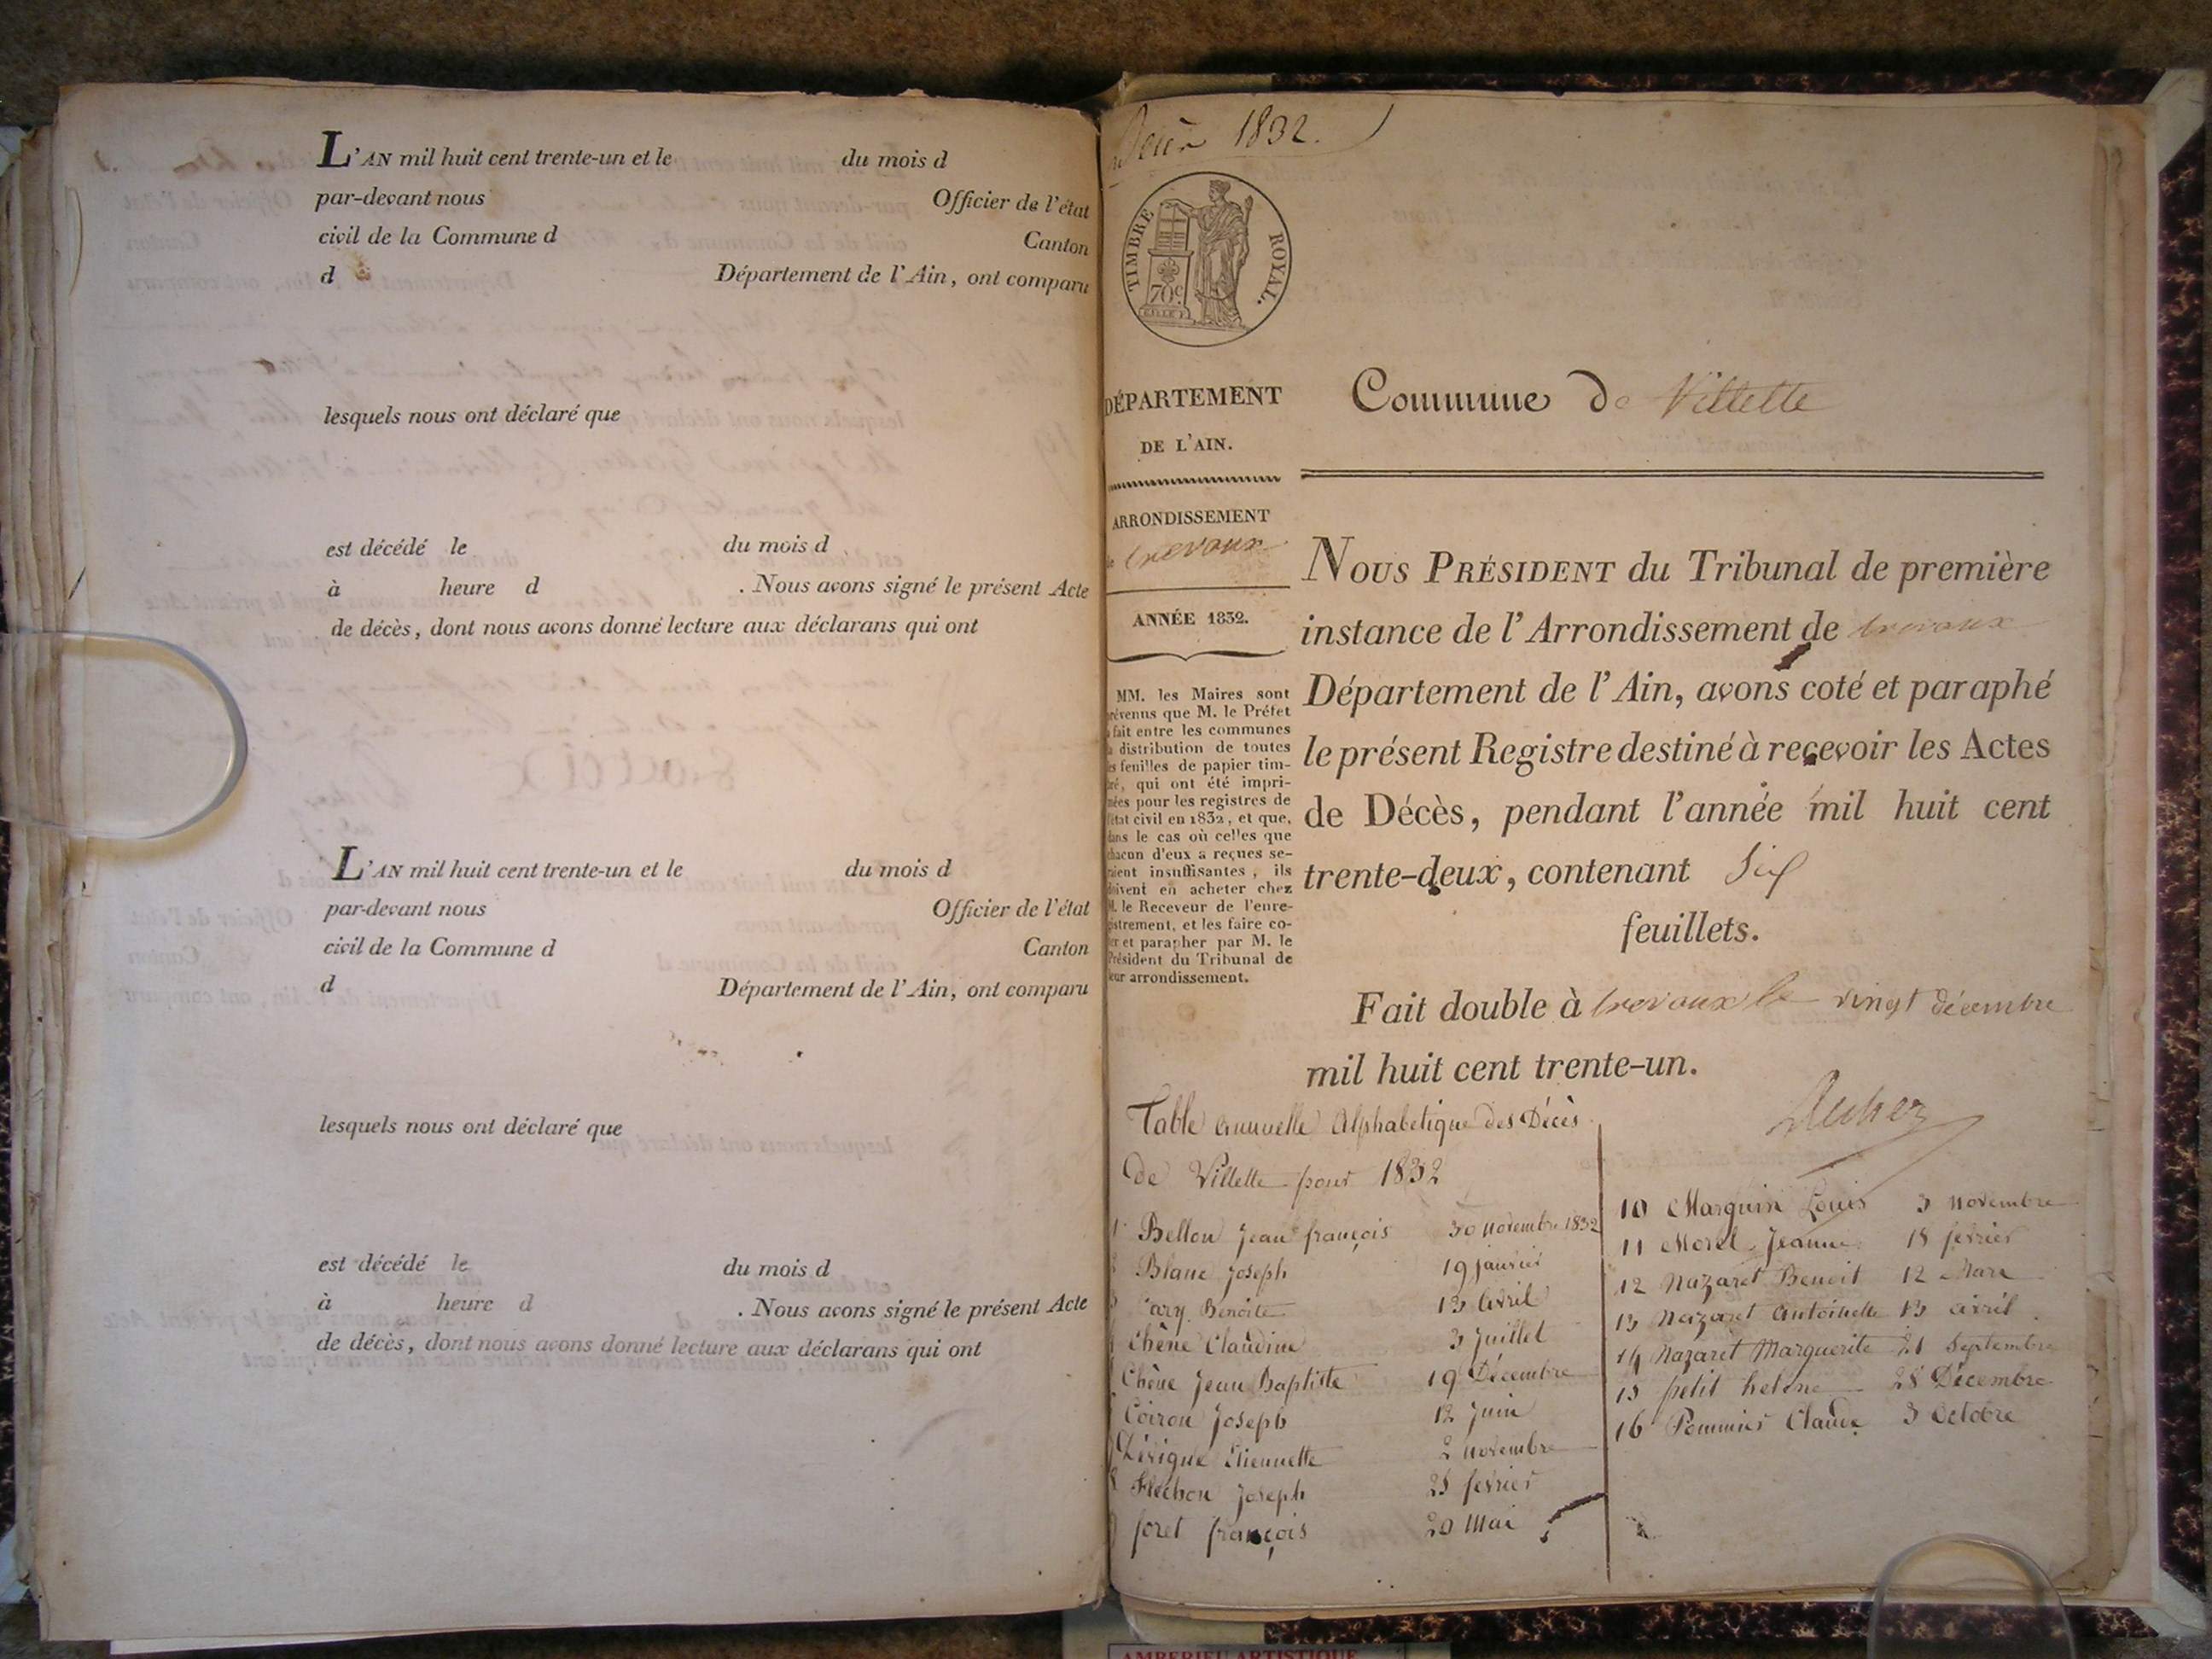 L'AN mil huit cent trente-un et le du mois d
par-devant nous Officier de l'état
civil de la Commune d Canton
d Département de l'Ain, ont comparu
lesquels nous ont déclaré que
est décédé le du mois d
à heure d . Nous avons signé le présent Acte
de décès, dont nous avons donné lecture aux déclarans qui ont
L'AN mil huit cent trente-un et le du mois d
par-devant nous Officier de l'état
civil de la Commune d Canton
d Département de l'Ain, ont comparu
lesquels nous ont déclaré que
est décédé le du mois d
à heure d . Nous avons signé le présent Acte
de décès, dont nous avons donné lecture aux déclarans qui ont
1832.
TIMBRE ROYAL.
70c
DÉPARTEMENT
DE L'AIN.
ARRONDISSEMENT
de trevoux
ANNÉE 1832.
MM. les Maires sont
prévenus que M. le Préfet
a fait entre les communes
la distribution de toutes
les feuilles de papier tim-
bré, qui ont été impri-
mées pour les registres de
l'état civil en 1832, et que,
dans le cas où celles que
chacun d'eux a reçues se-
raient insuffisantes, ils
doivent en acheter chez
M. le Receveur de l'enre-
gistrement, et les faire co-
ter et parapher par M. le
Président du Tribunal de
leur arrondissement.
Commune de Villette
NOUS PRÉSIDENT du Tribunal de première
instance de l'Arrondissement de trevoux
Département de l'Ain, avons coté et paraphé
le présent Registre destiné à recevoir les Actes
de Décès, pendant l'année mil huit cent
trente-deux, contenant Six
feuillets.
Fait double à trevoux le vingt décembre
mil huit cent trente-un.
Table annuelle Alphabetique des Décès
de Villette pour 1832
1 Bellon Jean françois 30 novembre 1832
2 Blanc Joseph 19 janvier
3 Cary Benoite 13 Avril
4 Chêne Claudine 3 Juillet
5 Chêne Jean Baptiste 19 Décembre
6 Coiron Joseph 12 Juin
7 Lévigne Etiennette 2 novembre
8 Fléchon Joseph 25 fevrier
9 foret françois 20 Mai
10 Marguin Louis 3 novembre
11 Morel Jeanne 18 fevrier
12 Nazaret Benoit 12 Mars
13 Nazaret Antoinette 13 avril
14 Nazaret Marguerite 21 Septembre
15 petit helene 28 Décembre
16 Pommier Claude 3 Octobre
AMBERIEU ARTISTIQUE